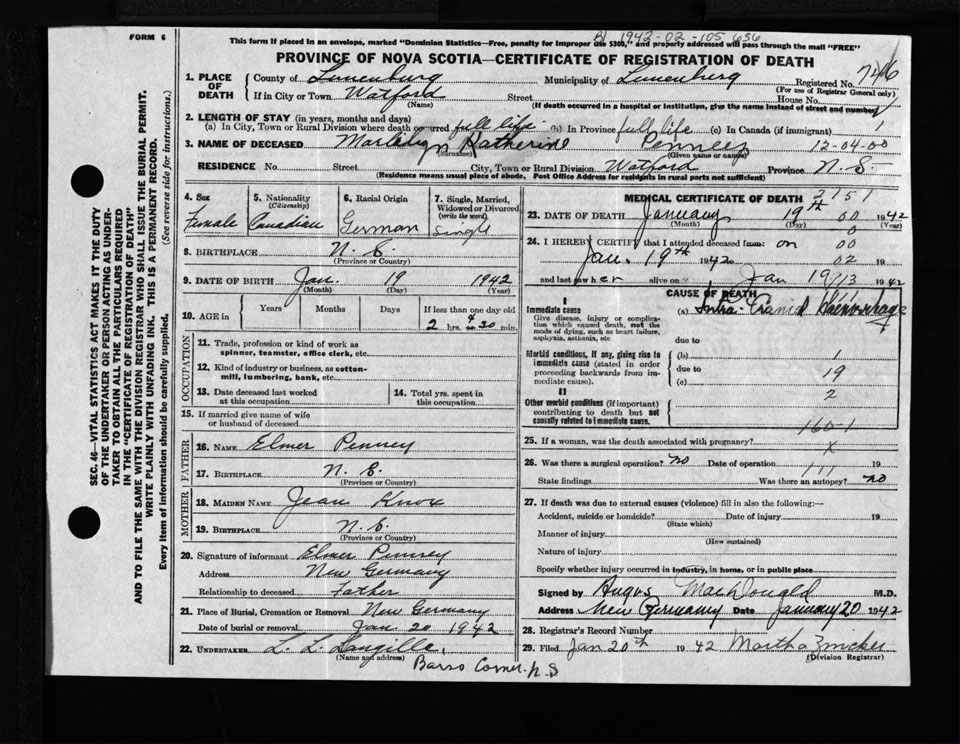 FORM 6
B1 1942-02-105636
This form if placed in an envelope, marked "Dominion Statistics—Free, penalty for improper use $300," and properly addressed will pass through the mail "FREE"
PROVINCE OF NOVA SCOTIA—CERTIFICATE OF REGISTRATION OF DEATH
SEC. 46—VITAL STATISTICS ACT MAKES IT THE DUTY
OF THE UNDERTAKER OR PERSON ACTING AS UNDER-
TAKER TO OBTAIN ALL THE PARTICULARS REQUIRED
IN THE "CERTIFICATE OF REGISTRATION OF DEATH"
AND TO FILE THE SAME WITH THE DIVISION REGISTRAR WHO SHALL ISSUE THE BURIAL PERMIT.
WRITE PLAINLY WITH UNFADING INK. THIS IS A PERMANENT RECORD.
Every item of information should be carefully supplied. (See reverse side for instructions.)
1. PLACE OF DEATH
County of Lunenburg Municipality of Lunenburg Registered No. 746
(For use of Registrar General only)
If in City or Town Watford Street House No.
(Name) (If death occurred in a hospital or institution, give the name instead of street and number)
2. LENGTH OF STAY (in years, months and days)
(a) In City, Town or Rural Division where death occurred full life (b) In Province full life (c) In Canada (if immigrant) 1
3. NAME OF DECEASED Katherine 12-04-00
(Surname) (Given name or names)
RESIDENCE No. Street City, Town or Rural Division Watford Province N. S.
(Residence means usual place of abode. Post Office Address for residents in rural parts not sufficient)
4. Sex
Female
5. Nationality
(Citizenship)
Canadian
6. Racial Origin
German
7. Single, Married,
Widowed or Divorced
(write the word)
Single
8. BIRTHPLACE N. S.
(Province or Country)
9. DATE OF BIRTH Jan. 19 1942
(Month) (Day) (Year)
10. AGE in Years Months Days If less than one day
2 hrs. 30 min.
OCCUPATION
11. Trade, profession or kind of work as
spinner, teamster, office clerk, etc.
12. Kind of industry or business, as cotton-
mill, lumbering, bank, etc.
13. Date deceased last worked
at this occupation
14. Total yrs. spent in
this occupation
15. If married give name of wife
or husband of deceased
FATHER
16. NAME Elmer Penney
17. BIRTHPLACE N. S.
(Province or Country)
MOTHER
18. MAIDEN NAME Jean Knox
19. BIRTHPLACE N. S.
(Province or Country)
20. Signature of informant Elmer Penney
Address New Germany
Relationship to deceased Father
21. Place of Burial, Cremation or Removal New Germany
Date of burial or removal Jan. 20 1942
22. UNDERTAKER L. L. Langille,
(Name and address)
Barss Corner N.S
MEDICAL CERTIFICATE OF DEATH
23. DATE OF DEATH January 19th 1942
(Month) (Day) (Year)
24. I HEREBY CERTIFY that I attended deceased from: on
Jan. 19th 1942 19
and last saw her alive on Jan 19 1942
CAUSE OF DEATH
I
Immediate cause
Give disease, injury, or complica-
tion which caused death, not the
mode of dying, such as heart failure,
asphyxia, asthenia, etc
(a) Intra-Cranial Haemorrhage
due to
Morbid conditions, if any, giving rise to
immediate cause (stated in order
proceeding backwards from im-
mediate cause).
(b) 1
due to 19
(c) 2
II
Other morbid conditions (if important)
contributing to death but not
causally related to immediate cause.
160-1
25. If a woman, was the death associated with pregnancy? x
26. Was there a surgical operation? no Date of operation 19
State findings Was there an autopsy? no
27. If death was due to external causes (violence) fill in also the following:—
Accident, suicide or homicide? Date of injury 19
(State which)
Manner of injury
(How sustained)
Nature of injury
Specify whether injury occurred in industry, in home, or in public place
Signed by Angus MacDougald M.D.
Address New Germany Date January 20 1942
28. Registrar's Record Number
29. Filed Jan 20th 1942 Martha Zwicker
(Division Registrar)